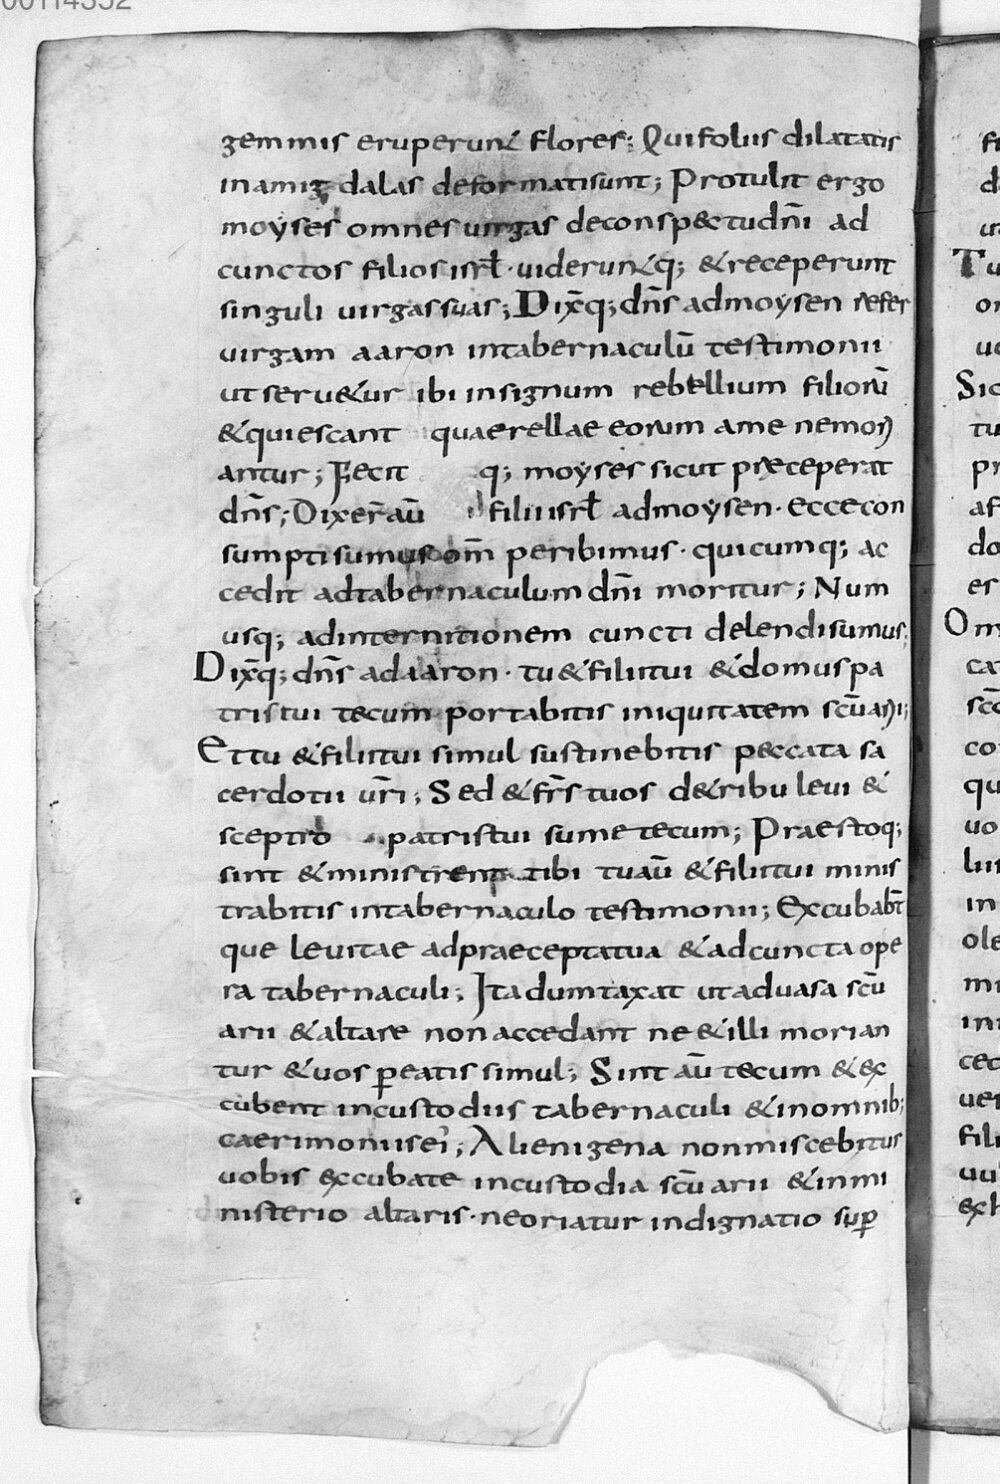 00114352
gemmis eruperunt flores; Qui foliis dilatatis
in amigdalas deformati sunt; Protulit ergo
moyses omnes uirgas de conspectu dn̄i ad
cunctos filios isrł · uideruntq; & receperunt
singuli uirgas suas; Dix̄q; dn̄s ad moysen refer
uirgam aaron in tabernaculū testimonii
ut seruetur ibi in signum rebellium filiorū
& quiescant quaerellae eorum a me ne mori
antur; Fecit q; moyses sicut preceperat
dn̄s; Dixer̄ aū filii isrł ad moysen · ecce con
sumpti sumus om̄ peribimus · quicumq; ac
cedit ad tabernaculum dn̄i moritur; Num
usq; ad internitionem cuncti delendi sumus;
Dix̄q; dn̄s ad aaron · tu & filii tui & domus pa
tris tui tecum portabitis iniquitatem scūarii;
Et tu & filii tui simul sustinebitis peccata sa
cerdotii ur̄i; Sed & fr̄s tuos de tribu leui &
sceptro patris tui sume tecum; Praestoq;
sint & ministrent tibi tu aū & filii tui minis
trabitis in tabernaculo testimonii; Excubabt̄
que leuitae ad praecepta tua & ad cuncta ope
ra tabernaculi; Ita dumtaxat ut ad uasa scū
arii & altare non accedant ne & illi morian
tur & uos ꝑeatis simul; Sint aū tecum & ex
cubent in custodiis tabernaculi & in omnib;
caerimoniis ei'; Alienigena non miscebitur
uobis excubate in custodia scūarii & in mi
nisterio altaris · ne oriatur indignatio suꝑ